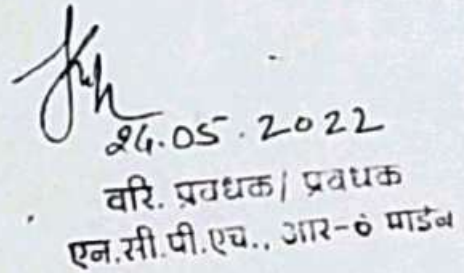 24.05.2022
वरि. प्रबंधक / प्रबंधक
एन.सी.पी.एच., आर-6 माईन